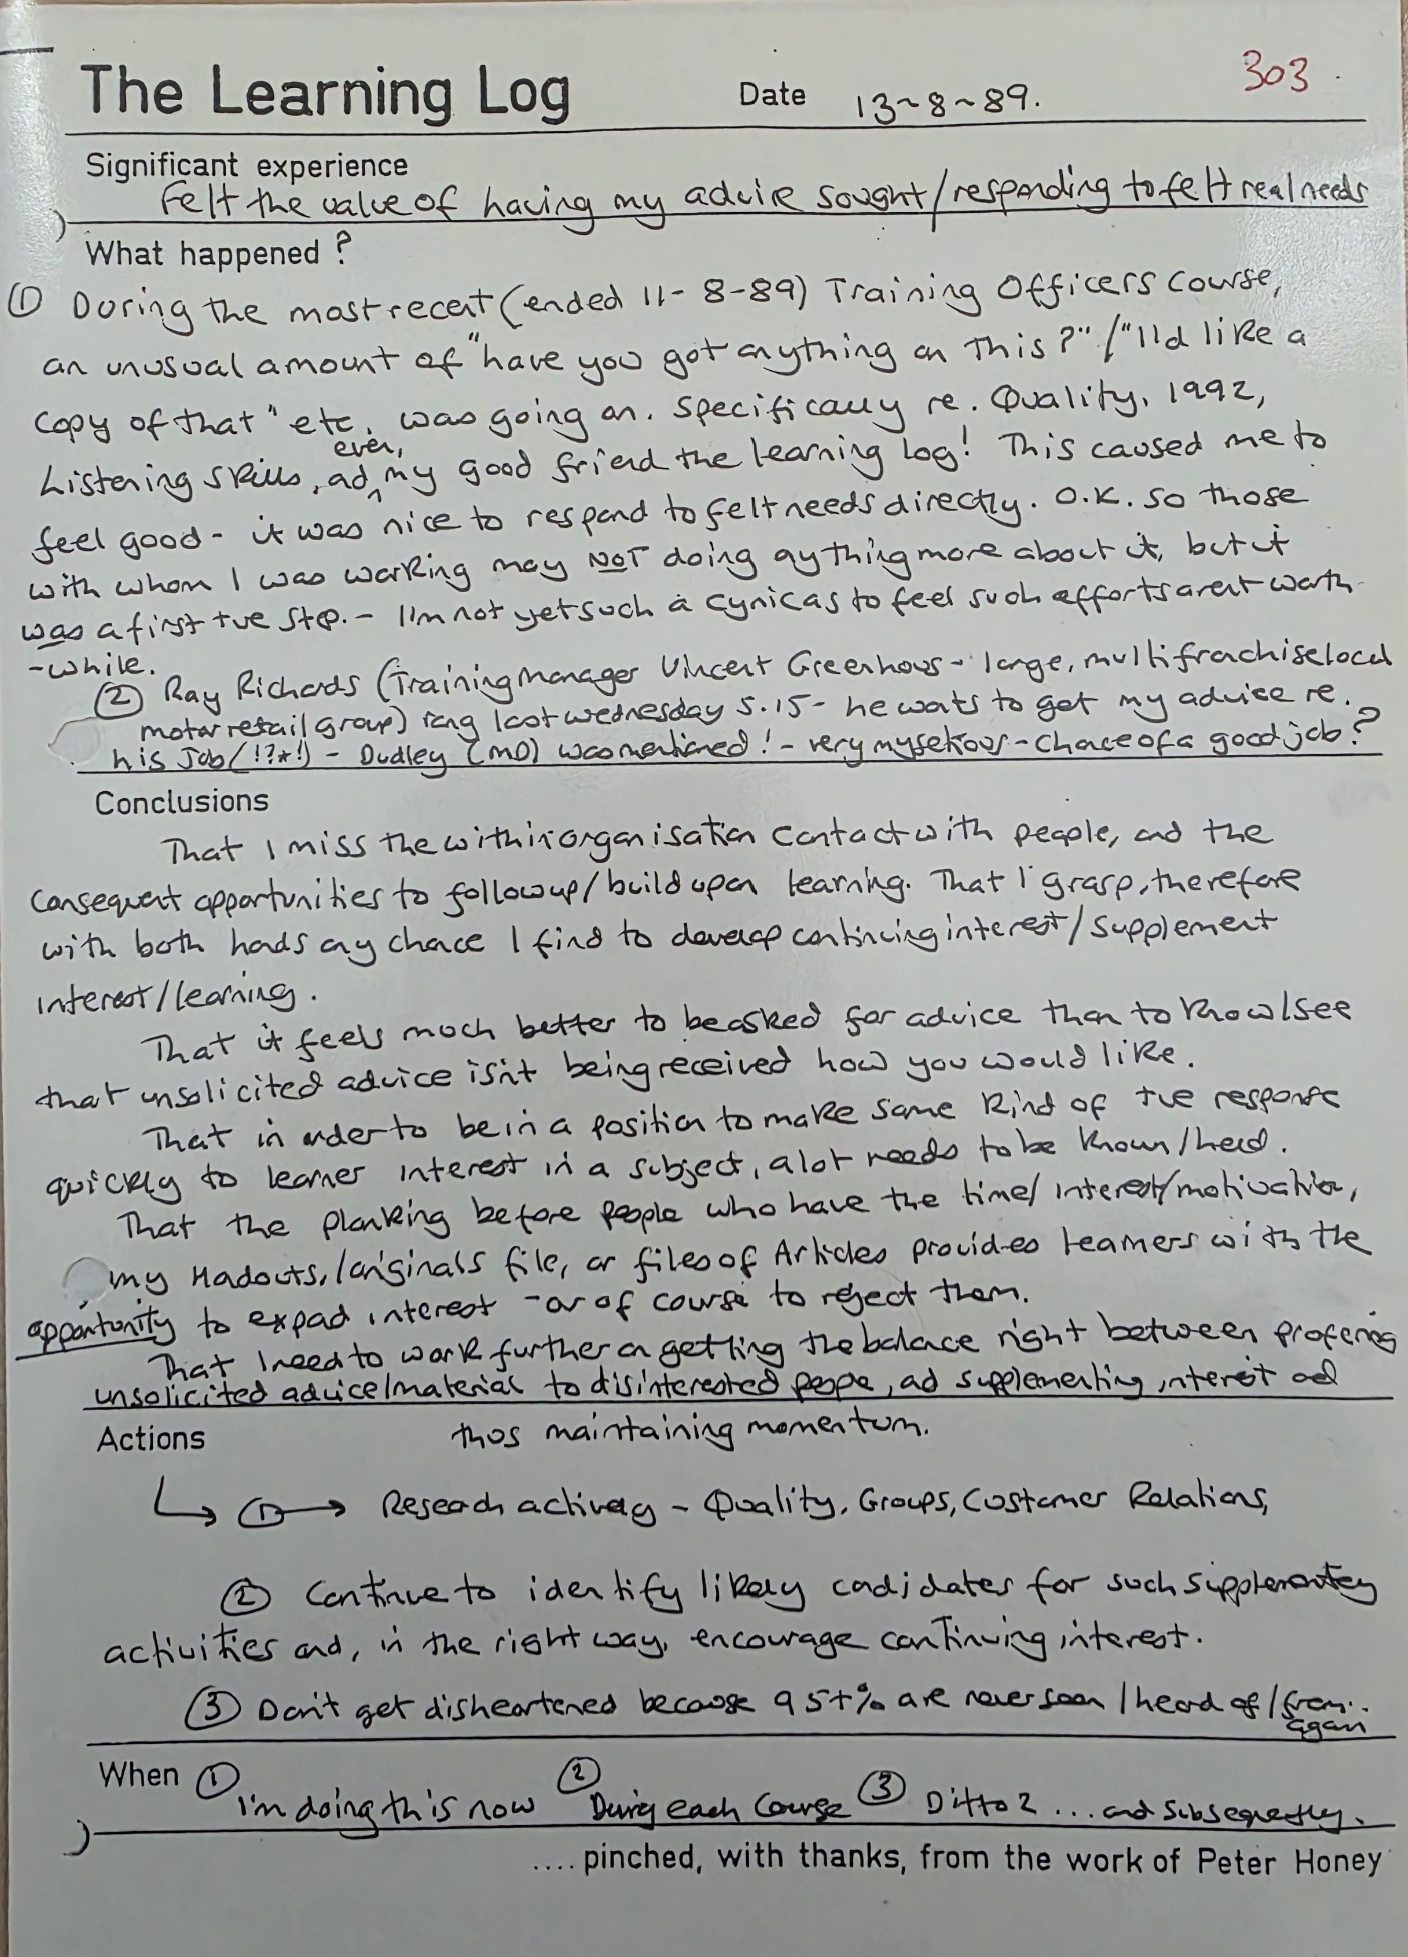 The Learning Log Date 13-8-89. 303
Significant experience
Felt the value of having my advice sought/responding to felt real needs
What happened?
① During the most recent (ended 11-8-89) Training Officers Course,
an unusual amount of "have you got anything on this?"/"I'ld like a
copy of that" etc. was going on. Specifically re. Quality, 1992,
Listening skills, and even, my good friend the learning log! This caused me to
feel good - it was nice to respond to felt needs directly. O.K. so those
with whom I was working may NOT doing anything more about it, but it
was a first +ve step. - I'm not yet such a cynic as to feel such efforts arent worth
-while.
② Ray Richards (Training Manager Vincent Greenhous - large, multi franchise local
motor retail group) rang last wednesday 5.15 - he wants to get my advice re.
his job (!?*!) - Dudley (MD) was mentioned! - very mysterious - chance of a good job?
Conclusions
That I miss the within organisation contact with people, and the
consequent opportunities to follow up/build upon learning. That I grasp, therefore
with both hands any chance I find to develop continuing interest/supplement
interest/learning.
That it feels much better to be asked for advice than to know/see
that unsolicited advice isn't being received how you would like.
That in order to be in a position to make some kind of +ve response
quickly to learner interest in a subject, a lot needs to be known/held.
That the planking before people who have the time/interest/motivation,
my Handouts,/originals file, or files of Articles provides learners with the
opportunity to expand interest - or of course to reject them.
That I need to work further on getting the balance right between profering
unsolicited advice/material to disinterested people, and supplementing interest and
thus maintaining momentum.
Actions
① Research actively - Quality, Groups, Customer Relations,
② Continue to identify likely candidates for such supplementary
activities and, in the right way, encourage continuing interest.
③ Don't get disheartened because 95+% are never seen/heard of/from..
again
When ① I'm doing this now ② During each Course ③ Ditto 2 ... and subsequently.
.... pinched, with thanks, from the work of Peter Honey